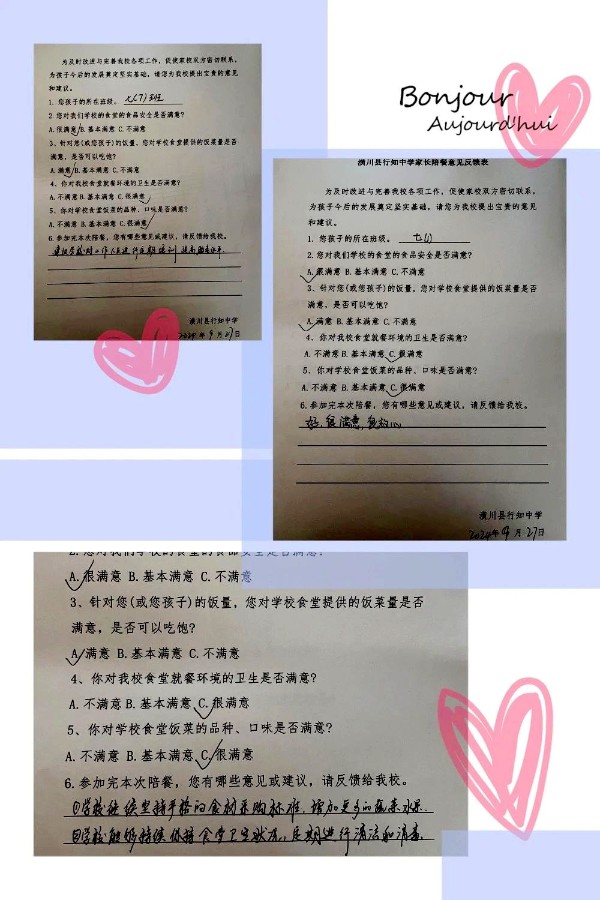 Bonjour
Aujourd'hui
为及时改进与完善我校各项工作，促使家校双方密切联系，
为孩子今后的发展奠定坚实基础，请您为我校提出宝贵的意见
和建议。
1. 您孩子的所在班级。七(7)班
2. 您对我们学校的食堂的食品安全是否满意？
A.很满意 B.基本满意 C.不满意
3、针对您(或您孩子)的饭量，您对学校食堂提供的饭菜量是否
满意，是否可以吃饱？
A.满意 B.基本满意 C.不满意
4、你对我校食堂就餐环境的卫生是否满意？
A.不满意 B.基本满意 C.很满意
5、你对学校食堂饭菜的品种、口味是否满意？
A.不满意 B.基本满意 C.很满意
6.参加完本次陪餐，您有哪些意见或建议，请反馈给我校。
建议学校对工作人员进行定期培训，提高服务水平
潢川县行知中学
2024年9月27日
潢川县行知中学家长陪餐意见反馈表
为及时改进与完善我校各项工作，促使家校双方密切联系，
为孩子今后的发展奠定坚实基础，请您为我校提出宝贵的意见
和建议。
1. 您孩子的所在班级。七(1)
2.您对我们学校的食堂的食品安全是否满意？
A.很满意 B.基本满意 C.不满意
3、针对您(或您孩子)的饭量，您对学校食堂提供的饭菜量是否
满意，是否可以吃饱？
A.满意 B.基本满意 C.不满意
4、你对我校食堂就餐环境的卫生是否满意？
A.不满意 B.基本满意 C.很满意
5、你对学校食堂饭菜的品种、口味是否满意？
A.不满意 B.基本满意 C.很满意
6.参加完本次陪餐，您有哪些意见或建议，请反馈给我校。
好，很满意，很放心
潢川县行知中学
2024年9月27日
2.您对我们学校的食堂的食品安全是否满意？
A.很满意 B.基本满意 C.不满意
3、针对您(或您孩子)的饭量，您对学校食堂提供的饭菜量是否
满意，是否可以吃饱？
A.满意 B.基本满意 C.不满意
4、你对我校食堂就餐环境的卫生是否满意？
A.不满意 B.基本满意 C.很满意
5、你对学校食堂饭菜的品种、口味是否满意？
A.不满意 B.基本满意 C.很满意
6.参加完本次陪餐，您有哪些意见或建议，请反馈给我校。
①学校继续坚持严格的食材采购标准，增加更多的蔬菜水果.
②学校能够持续保持食堂卫生状况，定期进行清洁和消毒.